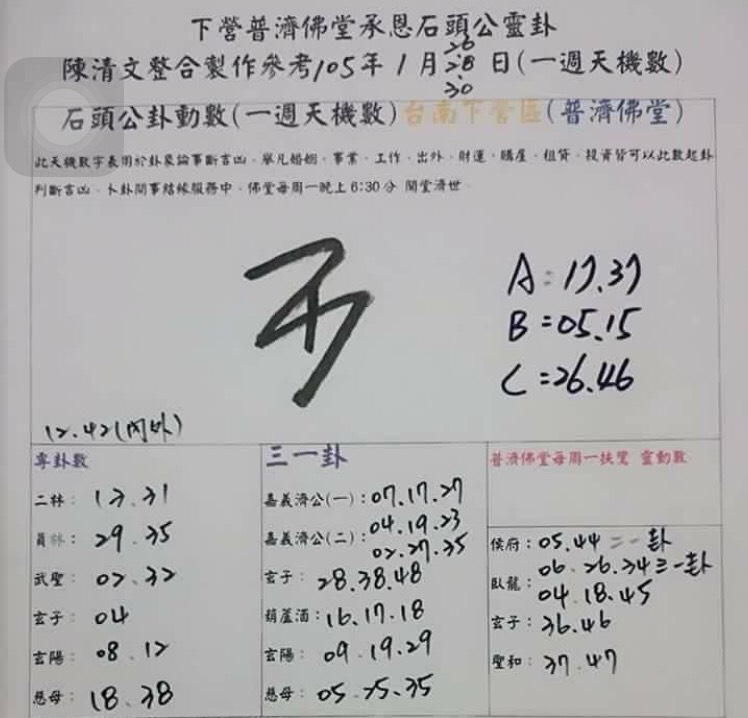 下營普濟佛堂承恩石頭公靈卦
陳清文整合製作參考105年1月26.28.30日(一週天機數)
石頭公卦動數(一週天機數)台南下營區(普濟佛堂)
此天機數字表用於卦象論事斷吉凶、舉凡婚姻、事業、工作、出外、財運、購屋、租貸、投資皆可以此數起卦
判斷吉凶、卜卦問事結緣服務中、佛堂每周一晚上6:30分 開堂濟世、
A:17.37
B=05.15
C=26.46
12.42(內外)
專卦數
二林:
員林: 29.35
武聖:
玄子: 04
玄陽: 08.12
慈母: 18.38
三一卦
嘉義濟公(一):07.17.27
嘉義濟公(二):04.19.23
02.27.35
玄子: 28.38.48
葫蘆酒:16.17.18
玄陽: 09.19.29
慈母: 05.25.35
普濟佛堂每周一扶鸞 靈動數
侯府:05.44二一卦
臥龍:06.26.34三一卦
04.18.45
玄子:36.46
聖和: 37.47